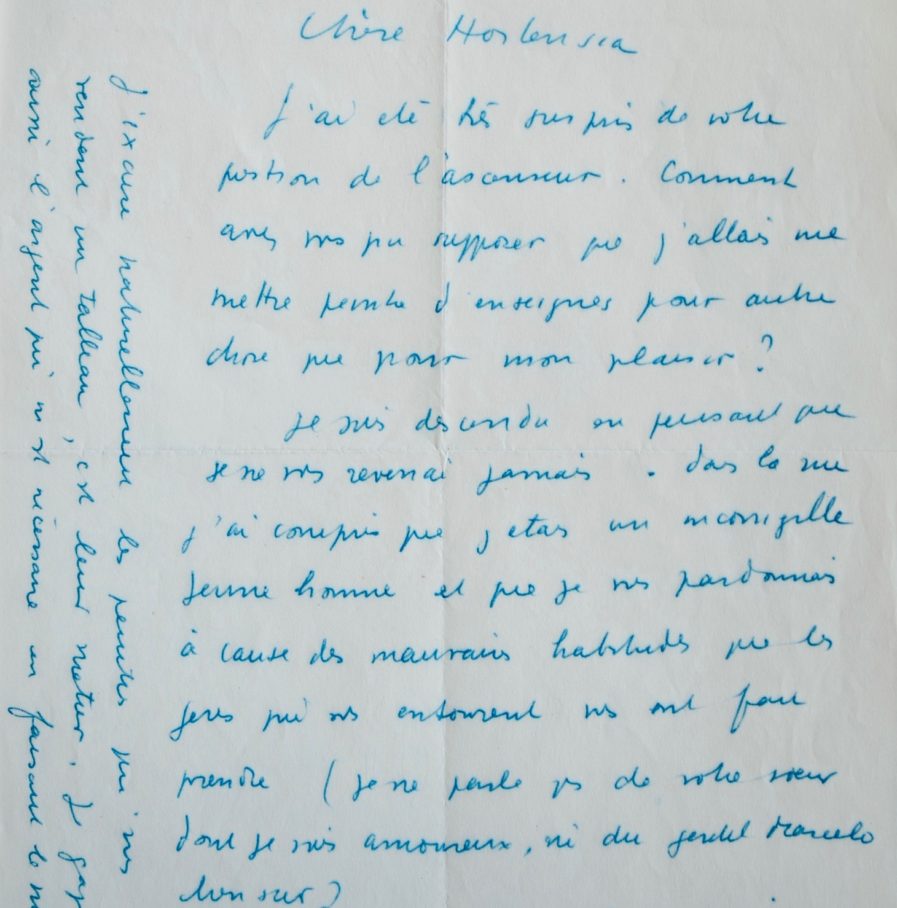 Chère Hortensia
J'ai été très surpris de votre
position de l'ascenseur. Comment
avez vous pu supposer que j'allais me
mettre peintre d'enseignes pour autre
chose que pour mon plaisir ?
Je suis descendu en pensant que
je ne vous reverrai jamais. Dans la rue
j'ai compris que j'étais un incorrigible
jeune homme et que je vous pardonnais
à cause des mauvaises habitudes que les
gens qui vous entourent vous ont fait
prendre (je ne parle pas de votre sœur
dont je suis amoureux, ni du gentil Marcelo
bien sur)
J'excuse naturellement les peintres qui vous
vendent un tableau, c'est leur métier. Je gagne
aussi l'argent qui m'est nécessaire en faisant le